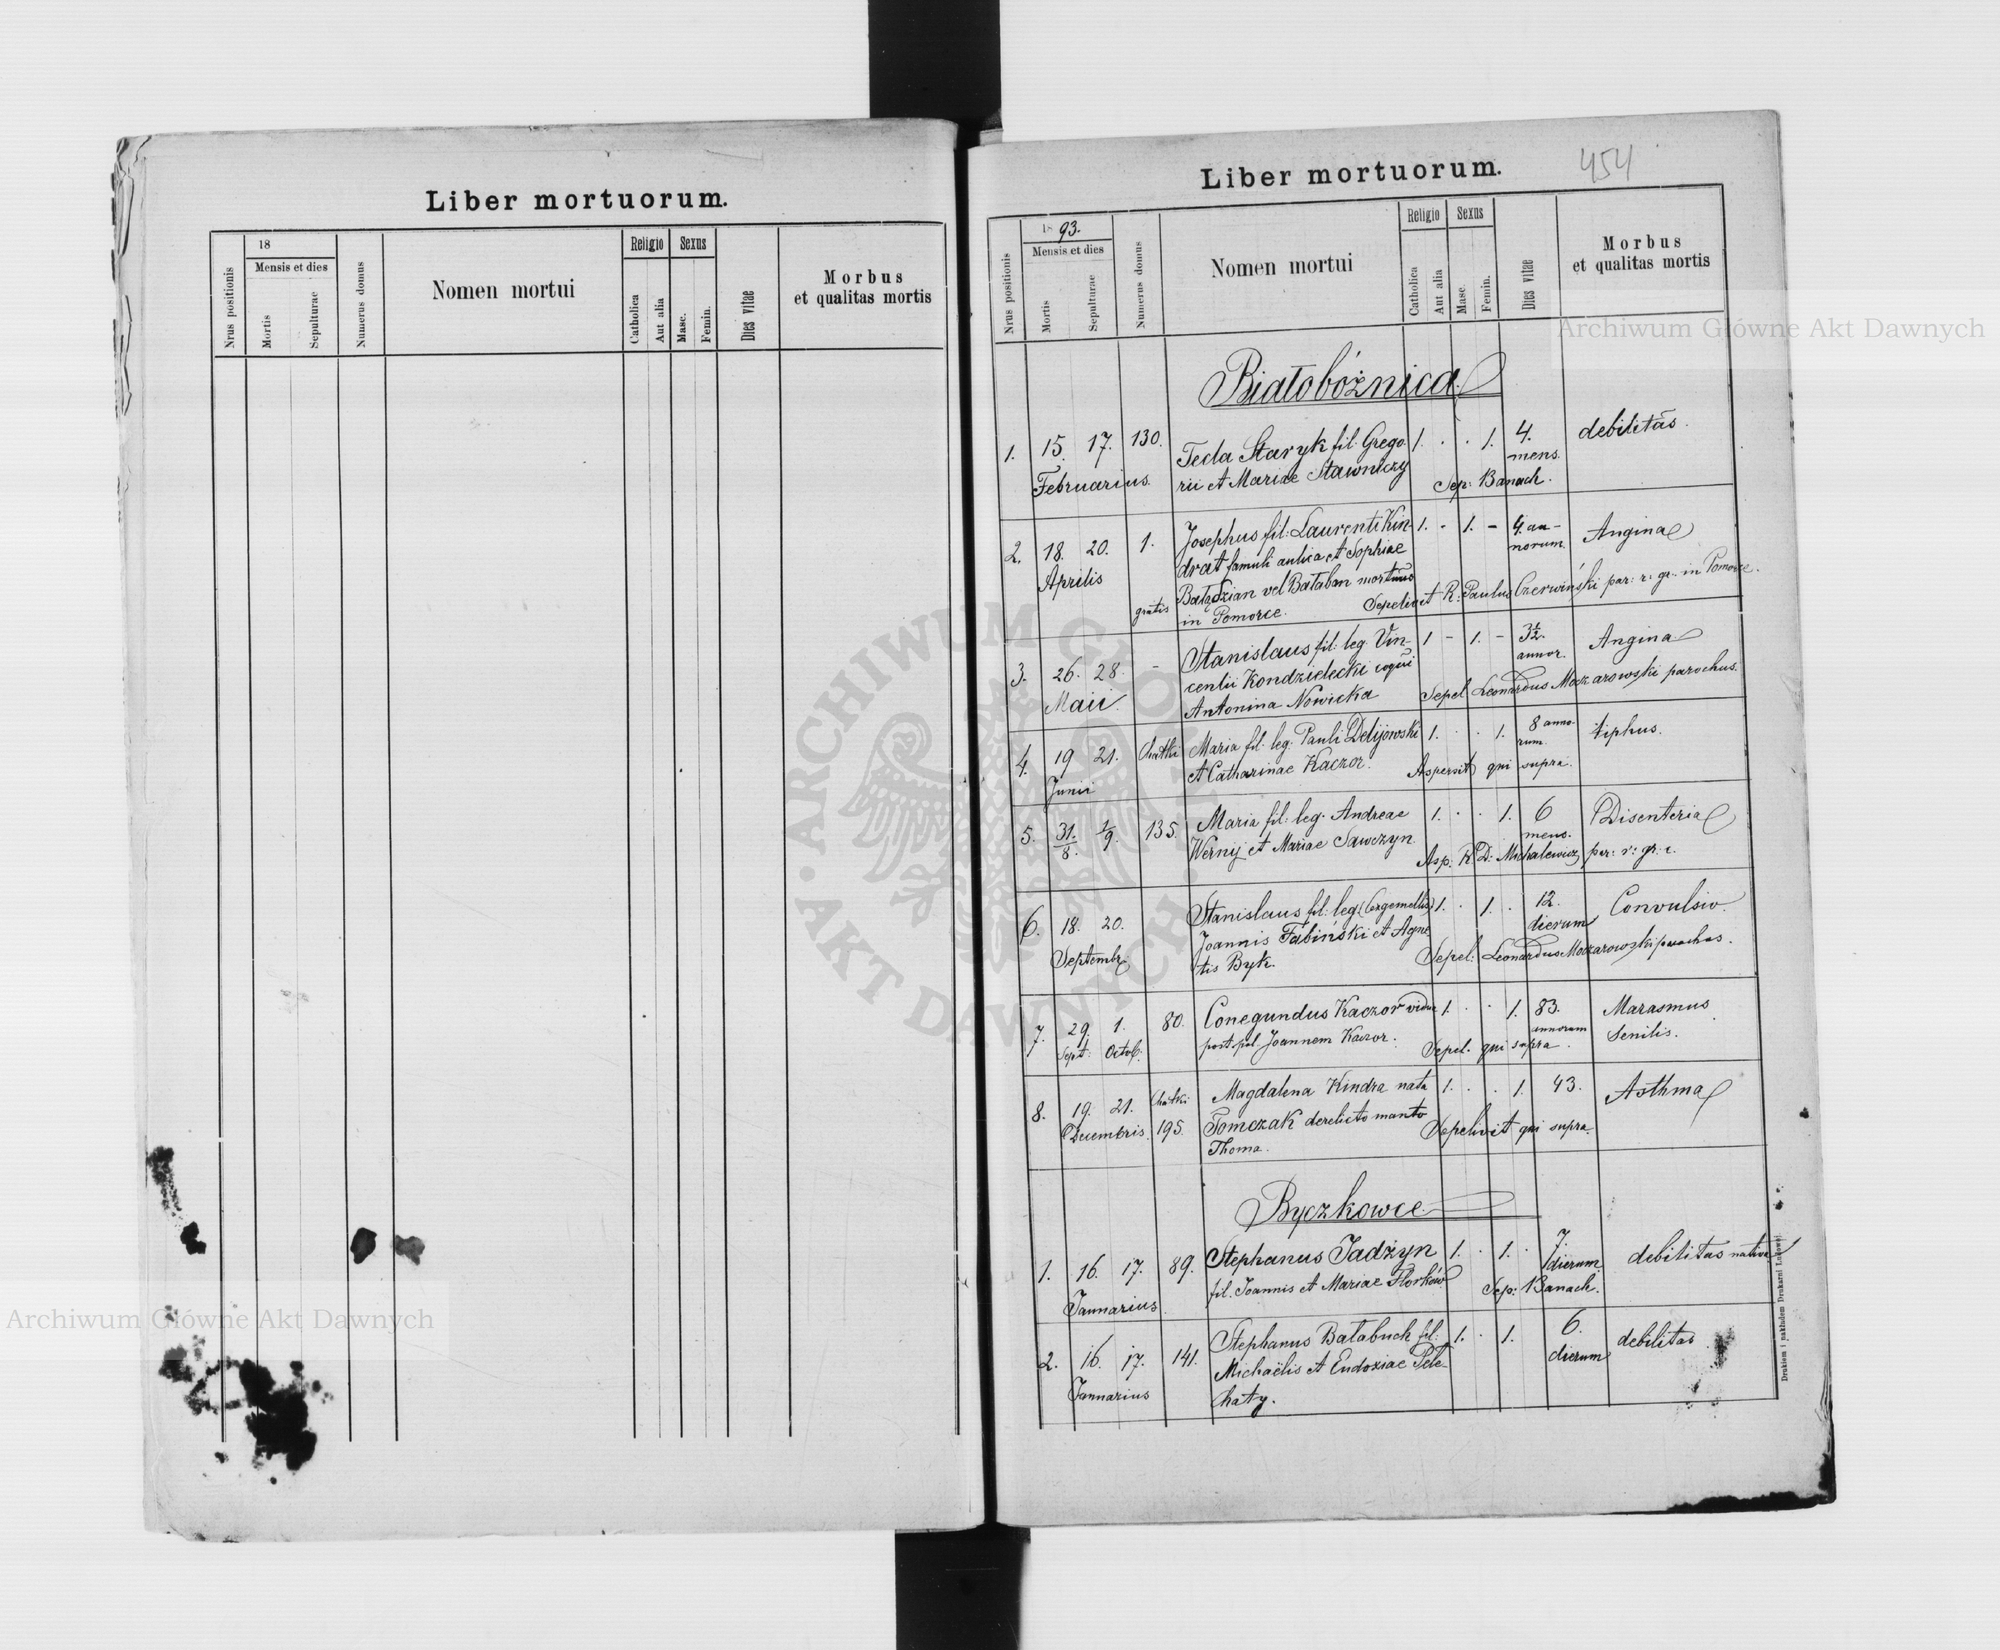 Liber mortuorum.
Nrus positionis
18
Mensis et dies
Mortis
Sepulturae
Numerus domus
Nomen mortui
Religio
Catholica
Aut alia
Sexus
Masc.
Femin.
Dies vitae
Morbus
et qualitas mortis
Liber mortuorum.
454
Nrus positionis
1893.
Mensis et dies
Mortis
Sepulturae
Numerus domus
Nomen mortui
Religio
Catholica
Aut alia
Sexus
Masc.
Femin.
Dies vitae
Morbus
et qualitas mortis
Białobóżnica
1. 15. 17. 130. Tecla Staryk fil: Grego 1. . . 1. 4. debilitas.
Februarius. rii et Mariae Stawniczy mens.
Sep: Banach.
2. 18. 20. 1. Josephus fil: Laurenti Kin 1. - 1. - 4. an- Angina
Aprilis drat famuli aulica et Sophiae norum.
gratis Bałądzian vel Bałaban mortuus Sepelivit R: Paulus Czerwiński par: r: gr: in Pomorce.
in Pomorce.
3. 26. 28. - Stanislaus fil: leg. Vin- 1 - 1. - 3½. Angina
Maii. centii Kondzielecki coqui annor.
Antonina Nowicka Sepel. Leonardus Moczarowski parochus.
4. 19 21. Chatki Maria fil: leg. Pauli Delijowski 1. . . 1. 8 anno- tiphus.
Junii et Catharinae Kaczor. rum.
Aspersit qui supra.
5. 31./8. 1/9. 135. Maria fil: leg. Andreae 1. . . 1. 6 Disenteria
Werny et Mariae Sawczyn. mens.
Asp: R D: Michalewicz par: r: gr: c.
6. 18. 20. Stanislaus fil: leg. (ex gemellis) 1. . 1. . 12. Convulsio.
Septembr. Joannis Fabiński et Agne dierum
tis Byk. Sepel: Leonardus Moczarowski parochus.
7. 29. 1. 80. Conegundus Kaczor vidua 1. . . 1. 83. Marasmus
Sept: Octob: post pel Joannem Kaczor. annorum Senilis.
Sepel. qui supra.
8. 19. 21. Chatki Magdalena Kindra nata 1. . . 1. 43. Asthma
Decembris. 195. Tomczak derelicto marito Sepelivit qui supra.
Thoma.
Byczkowce
1. 16. 17. 89. Stephanus Jadżyn 1. . 1. . 7. debilitas nativa
Januarius. fil. Joannis et Mariae Florków dierum.
Sep: Banach.
2. 16. 17. 141. Stephanus Bałabuch fil: 1. . 1. 6. debilitas
Januarius Michaëlis et Eudoxiae Pele- dierum
chaty.
Drukiem i nakładem Drukarni Ludowej.
Archiwum Główne Akt Dawnych
Archiwum Główne Akt Dawnych
ARCHIWUM GŁÓWNE AKT DAWNYCH